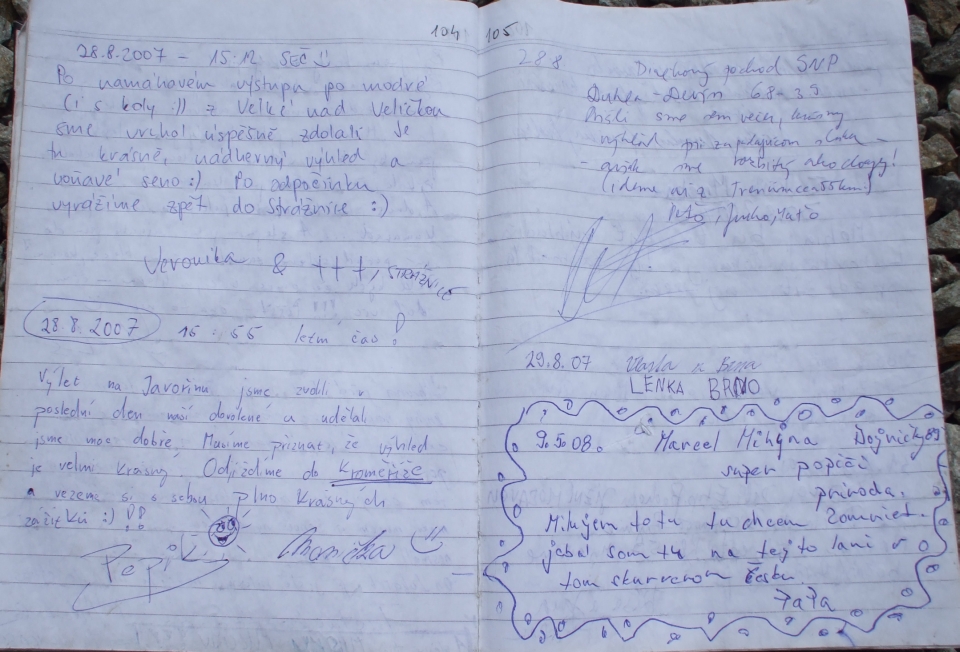 104
28.8.2007 - 15.12 SEČ
Po namáhavém výstupu po modré
(i s koly :)) z Velké nad Veličkou
sme vrchol úspěšně zdolali. Je
tu krásně, nádherný výhled a
voňavé seno :) Po odpočinku
vyrážíme zpět do Strážnice :)
Veronika & +++, STRÁŽNICE
28.8.2007 15:55 letní čas!
Výlet na Javořinu jsme zvolili v
poslední den naší dovolené a udělali
jsme moc dobře. Musíme přiznat, že výhled
je velmi krásný. Odjíždíme do Kroměříže
a vezeme si s sebou plno krásných
zážitků :) !!
Pepi
105
288 Diaľkový pochod SNP
Dukla - Devín 68-39
sme sem
výhľad pri zapadajúcom
sme rozbitý ako
(ideme už z Trenčína 55km.)
Peťo, Juho, Taťo
29.8.07 Vlasta z Brna
LENKA BRNO
9.5.08. Marcel Mihýna
super popíči
príroda.
Milujem to tu tu chcem zomrieť.
jebal som tu na tejto lani v
tom skurvenom Česku.